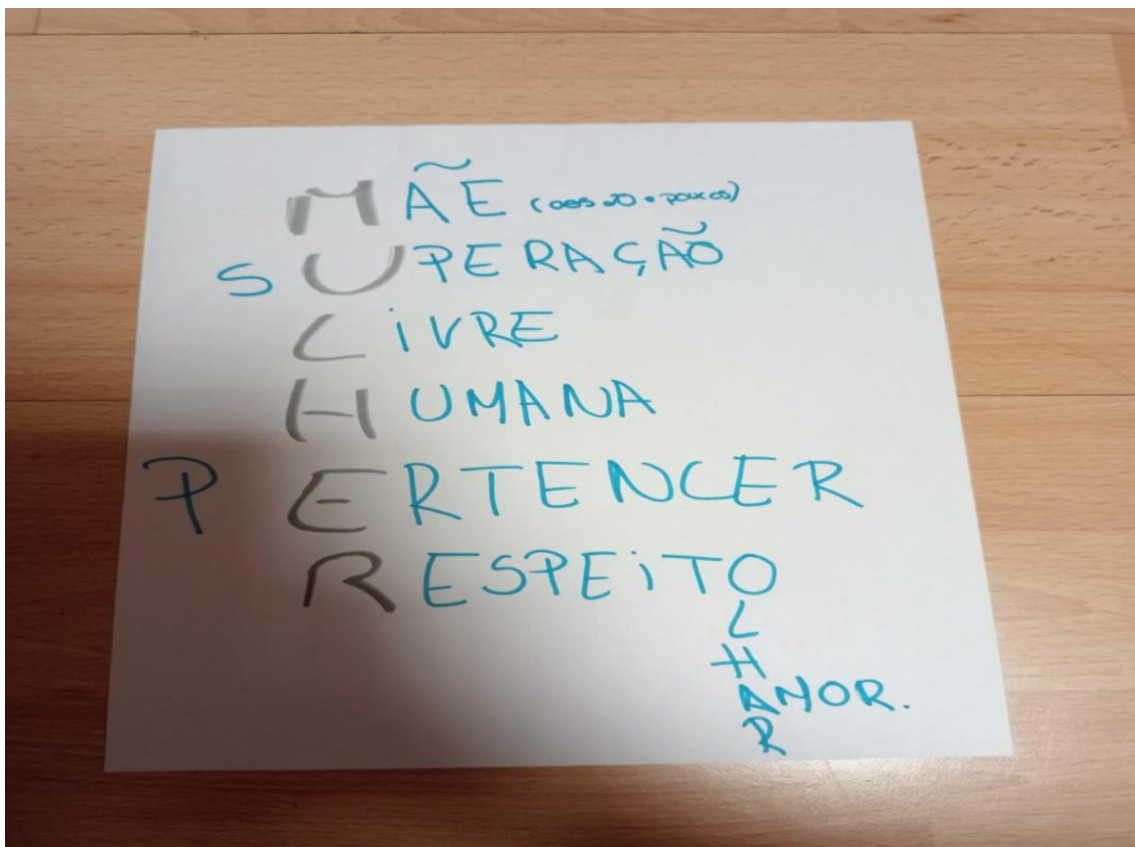 MÃE (aos 20 e poucos)
SUPERAÇÃO
LIVRE
HUMANA
PERTENCER
RESPEITO
L
H
AMOR.
R